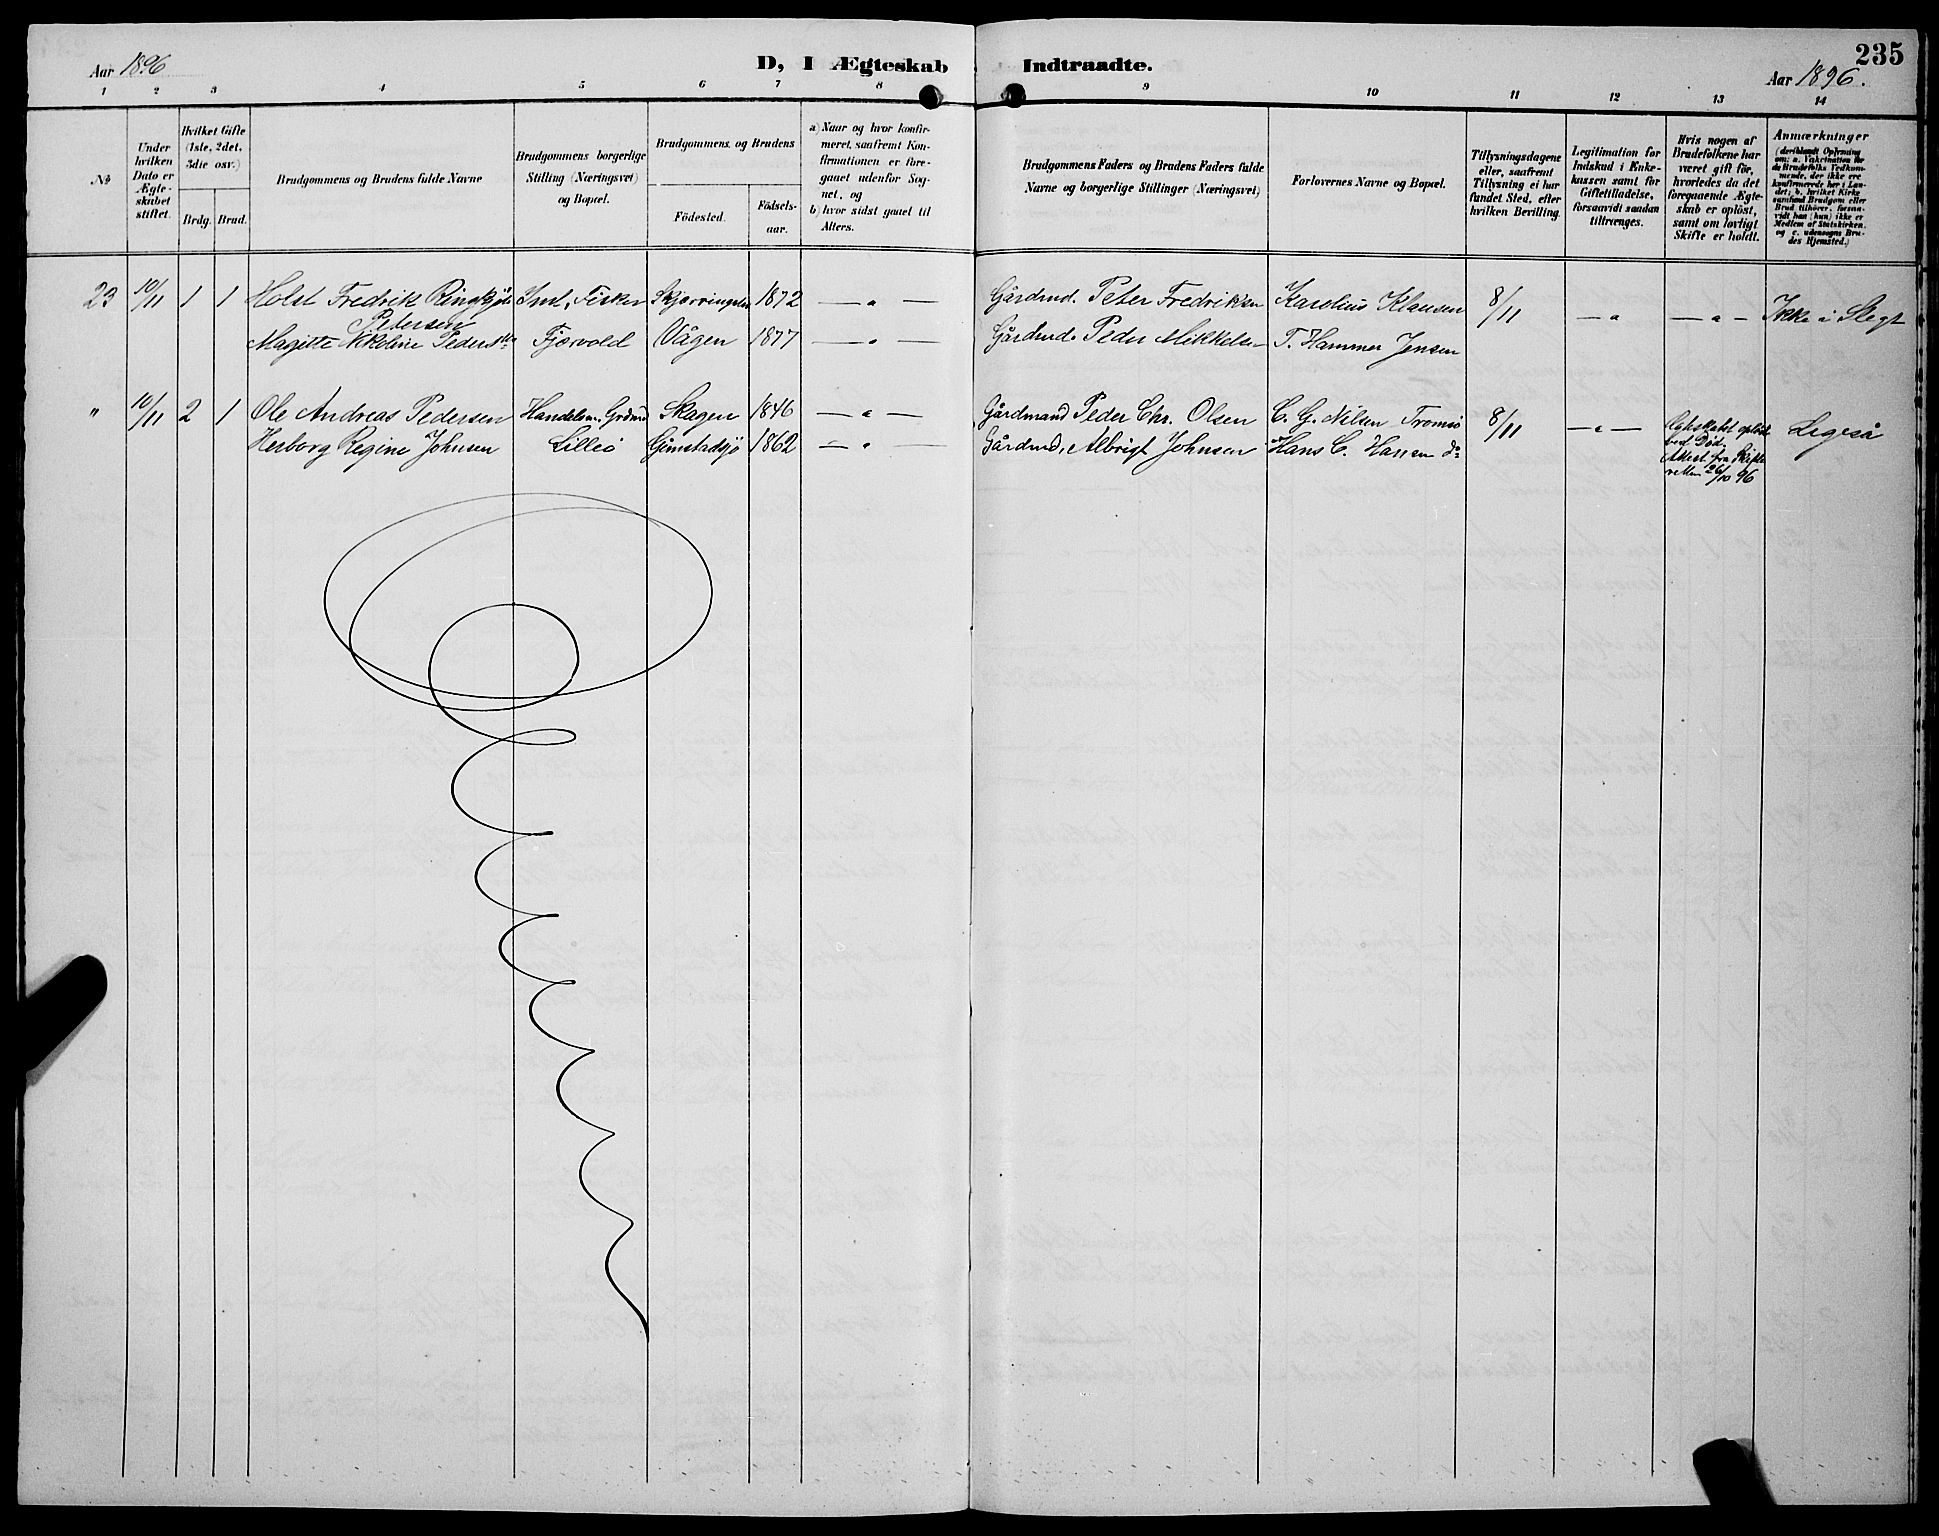 235
Aar 1896
D, I Ægteskab Indtraadte.
Aar 1896.
1 2 3 4 5 6 7 8 9 10 11 12 13 14
No
Under hvilken Dato er Ægte-skabet stiftet.
Hvilket Gifte (1ste, 2det, 3die osv.)
Brdg. Brud.
Brudgommens og Brudens fulde Navne
Brudgommens borgerlige Stilling (Næringsvei) og Bopæl.
Brudgommens og Brudens
Födested. Födsels-aar.
a) Naar og hvor konfir-
meret, saafremt Kon-
firmationen er fore-
gaaet udenfor Sog-
net, og
b) hvor sidst gaaet til
Alters.
Brudgommens Faders og Brudens Faders fulde
Navne og borgerlige Stillinger (Næringsvei)
Forlovernes Navne og Bopæl.
Tillysningsdagene
eller, saafremt
Tillysning ei har
fundet Sted, efter
hvilken Bevilling.
Legitimation for
Indskud i Enke-
kassen samt for
Giftetilladelse,
forsaavidt saadan
tiltrænges.
Hvis nogen af
Brudefolkene har
været gift för,
hvorledes da det
foregaaende Ægte-
skab er oplöst,
samt om lovligt
Skifte er holdt.
Anmærkninger
(deriblandt Oplysning
om: a. Vakcination for
de Brudefolks Vedkom-
mende, der ikke ere
konfirmerede her i Lan-
det; b. hvilket Kirke
samfund Brudgom eller
Brud tilhörer, forsaa-
vidt han (hun) ikke er
Medlem af Statskirken,
og c. udensogns Bru-
des Hjemsted.)
23 10/11 1 1 Holst Fredrik Ringkjöb Petersen Ind., Fisker 1872 — " — Gårdmd. Peter Fredriksen Karolius Klausen 8/11 — " — — " — Ikke i Slegt
Magitte Nikoline Pedersdtr Fjærvold Vågen 1877 — " — Gårdmd. Peder Mikkelsen T. Hammer Jensen
" 10/11 2 1 Ole Andreas Pedersen Handelsm. Grdmd Skagen 1846 — " — Gårdmand Peder Chr. Olsen C. G. Nilsen Tromsö 8/11 — " — Ligeså
Herborg Regine Johnsen Lilleö Gimstadsjö 1862 — " — Gårdmd. Albrigt Johnsen Hans C. Hansen do
Ægteskabet oplöst
ved Död.
Attest fra Skifte
retten 26/10 96